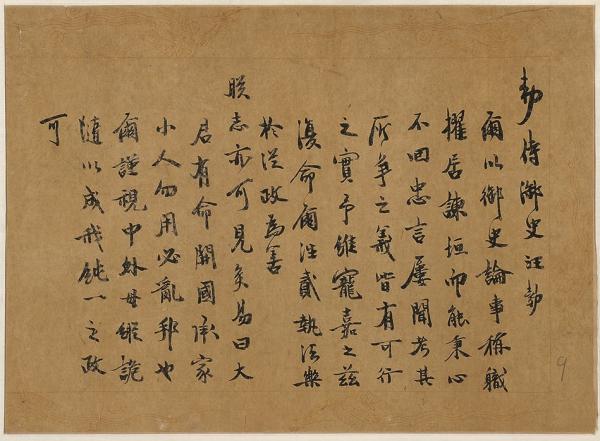 勑侍御史汪勃
爾以御史論事稱職
擢居諫垣而能秉心
不回忠言屢聞考其
所爭之義皆有可行
之實予維寵嘉之茲
復命爾往貳執法樂
於從政為善
朕志亦可見矣易曰大
君有命開國承家
小人勿用必亂邦也
爾謹視中外毋縱詭
隨以成我純一之政
可
9